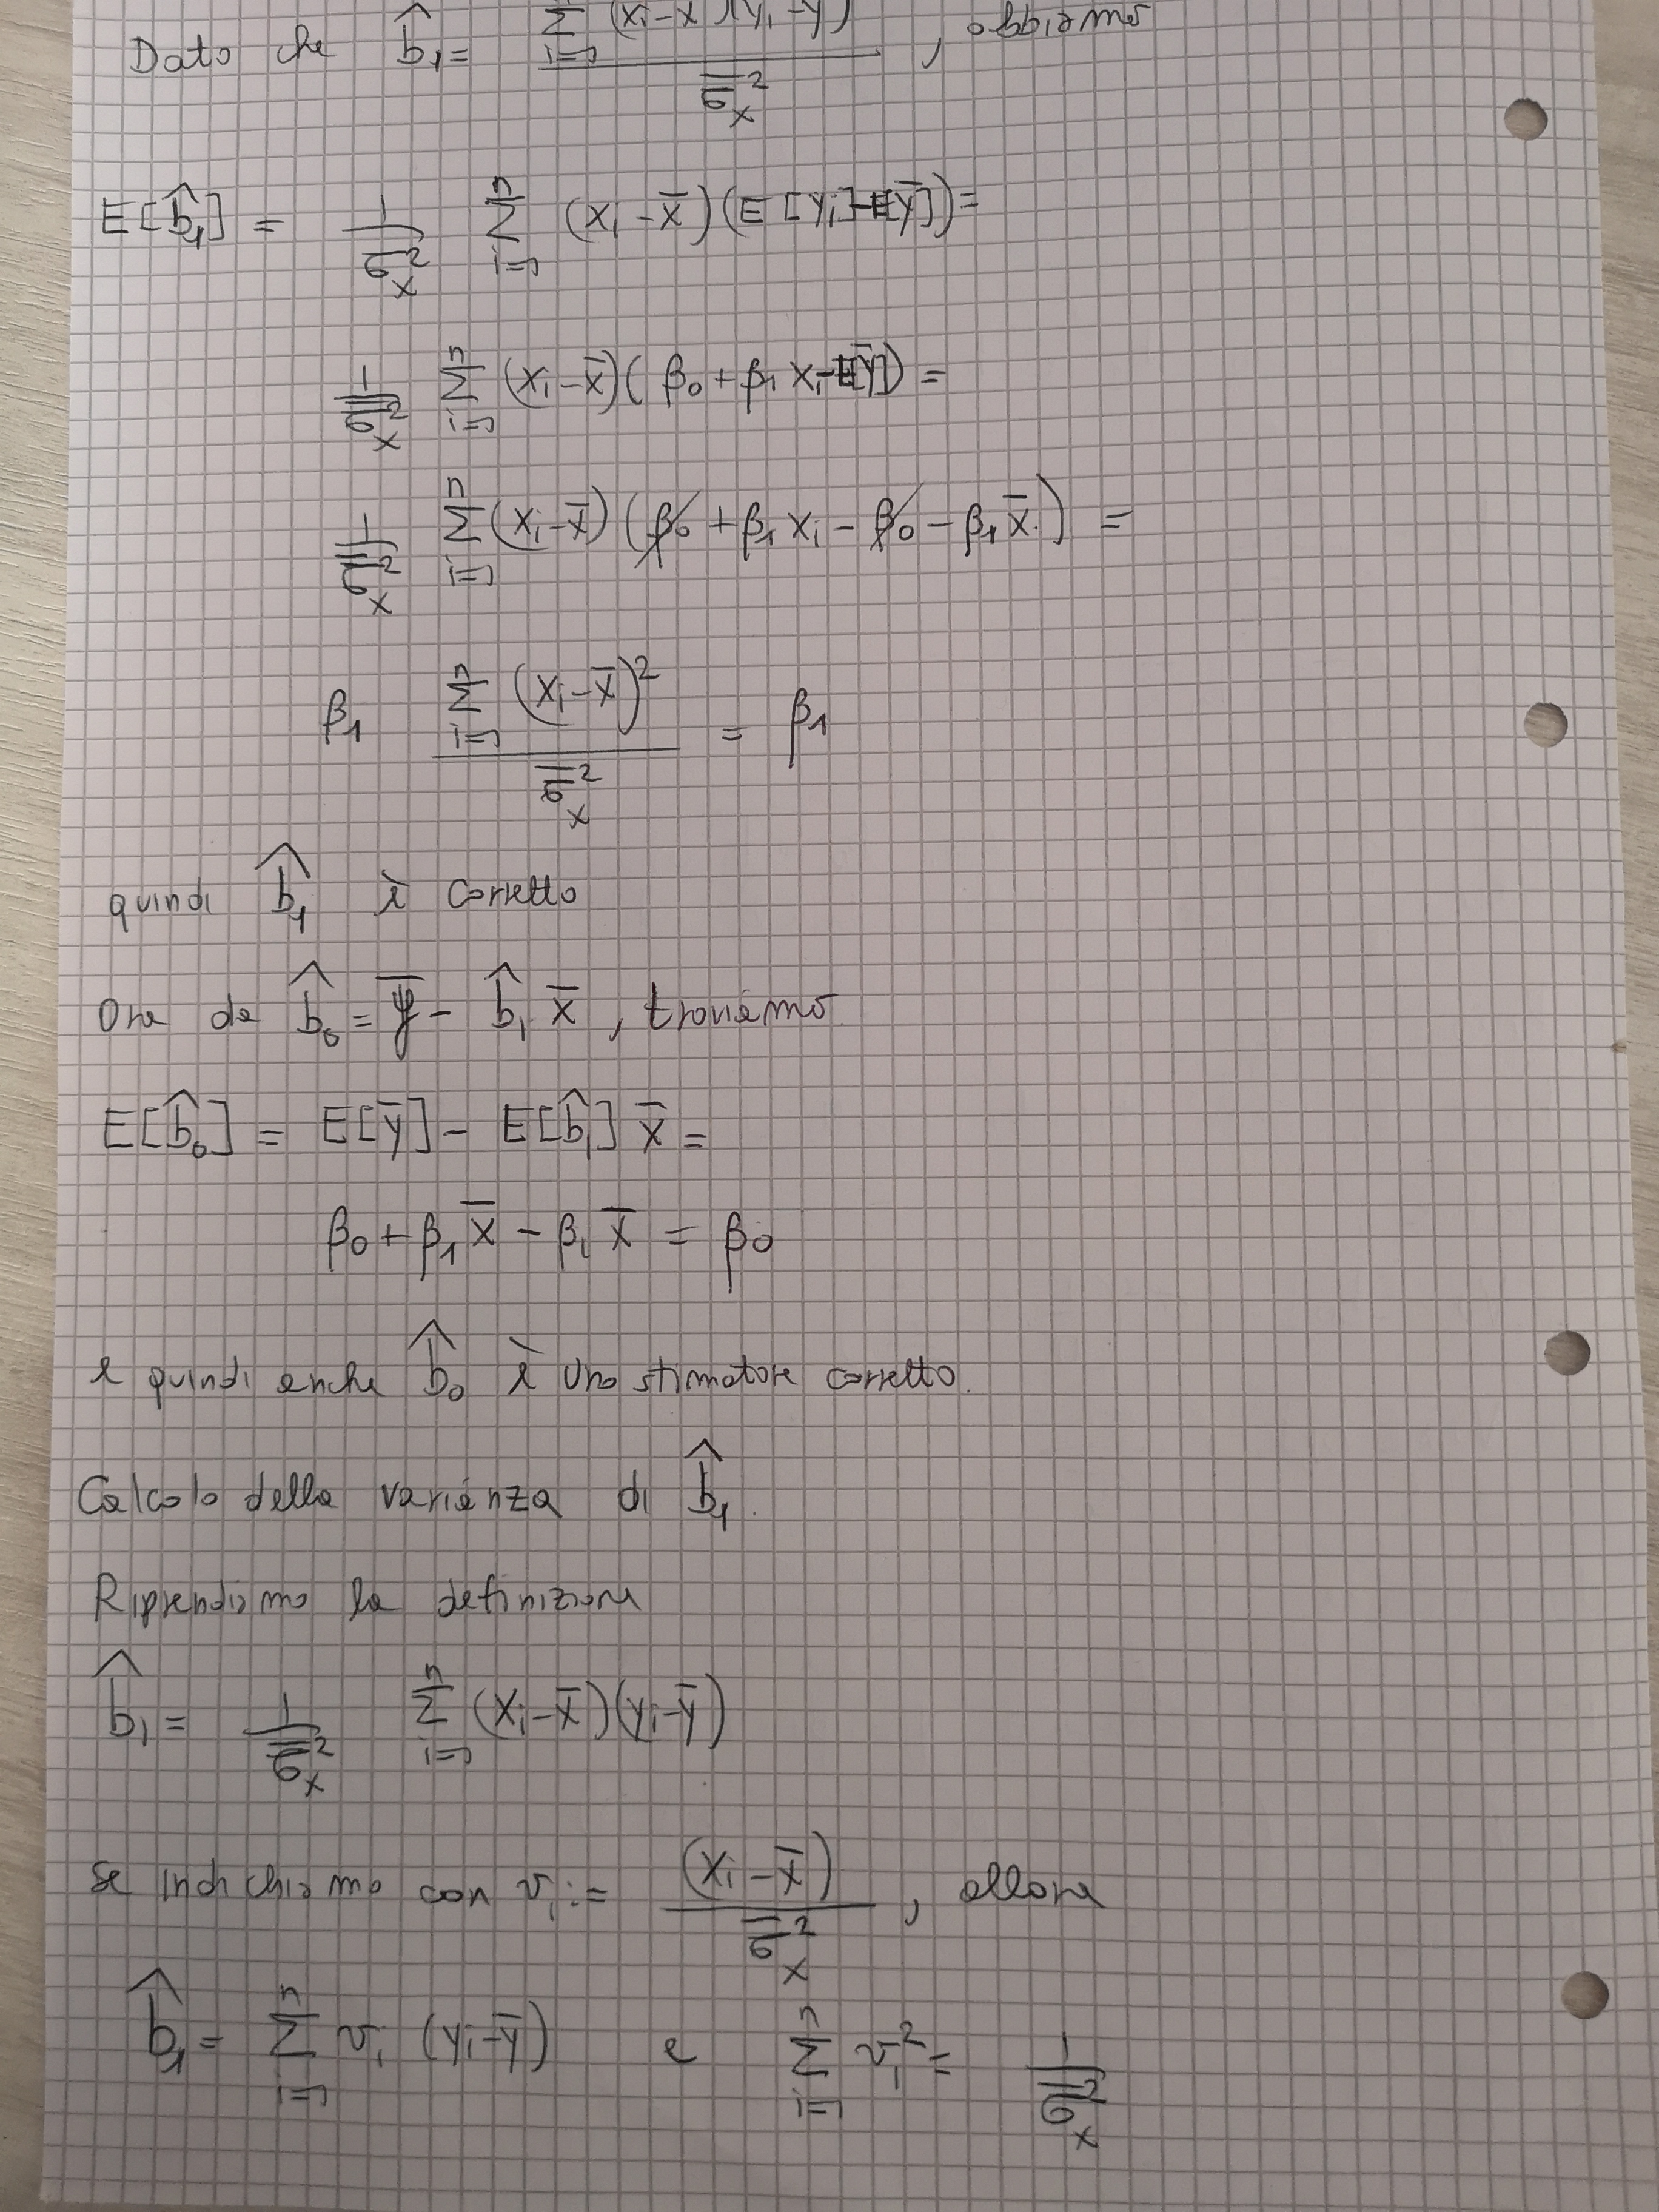 Dato che b̂₁ = Σᵢ₌₁ (xᵢ-x̄)(yᵢ-ȳ) / σ̄ₓ² , abbiamo
E[b̂₁] = 1/σ̄ₓ² Σᵢ₌₁ⁿ (xᵢ-x̄)(E[yᵢ]-E[ȳ]) =
1/σ̄ₓ² Σᵢ₌₁ⁿ (xᵢ-x̄)(β₀+β₁xᵢ-E[ȳ]) =
1/σ̄ₓ² Σᵢ₌₁ⁿ (xᵢ-x̄)(β₀+β₁xᵢ-β₀-β₁x̄) =
β₁ Σᵢ₌₁ⁿ (xᵢ-x̄)² / σ̄ₓ² = β₁
quindi b̂₁ è corretto
Ora da b̂₀ = ȳ - b̂₁ x̄ , troviamo
E[b̂₀] = E[ȳ] - E[b̂₁] x̄ =
β₀+β₁x̄ - β₁x̄ = β₀
e quindi anche b̂₀ è uno stimatore corretto.
Calcolo della varianza di b̂₁.
Riprendiamo la definizione
b̂₁ = 1/σ̄ₓ² Σᵢ₌₁ⁿ (xᵢ-x̄)(yᵢ-ȳ)
se indichiamo con vᵢ := (xᵢ-x̄) / σ̄ₓ² , allora
b̂₁ = Σᵢ₌₁ⁿ vᵢ (yᵢ-ȳ) e Σᵢ₌₁ⁿ vᵢ² = 1/σ̄ₓ²